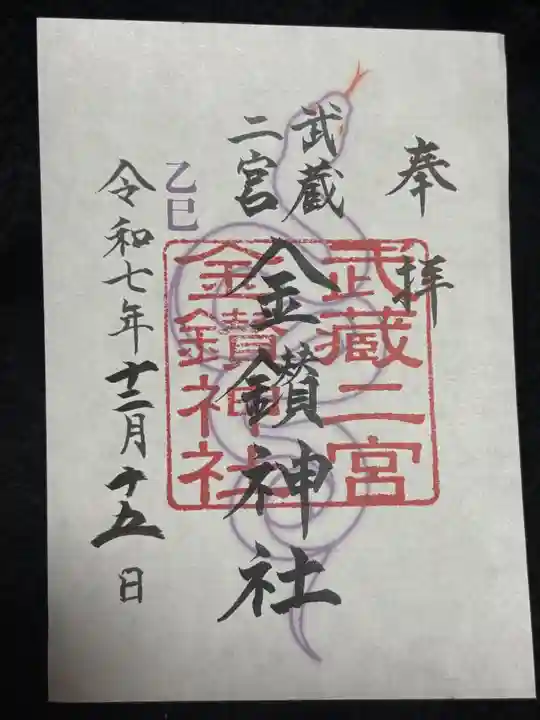 奉拝
武蔵
二宮
金鑚神社
武蔵二宮
金鑚神社
乙巳
令和七年十二月十五日